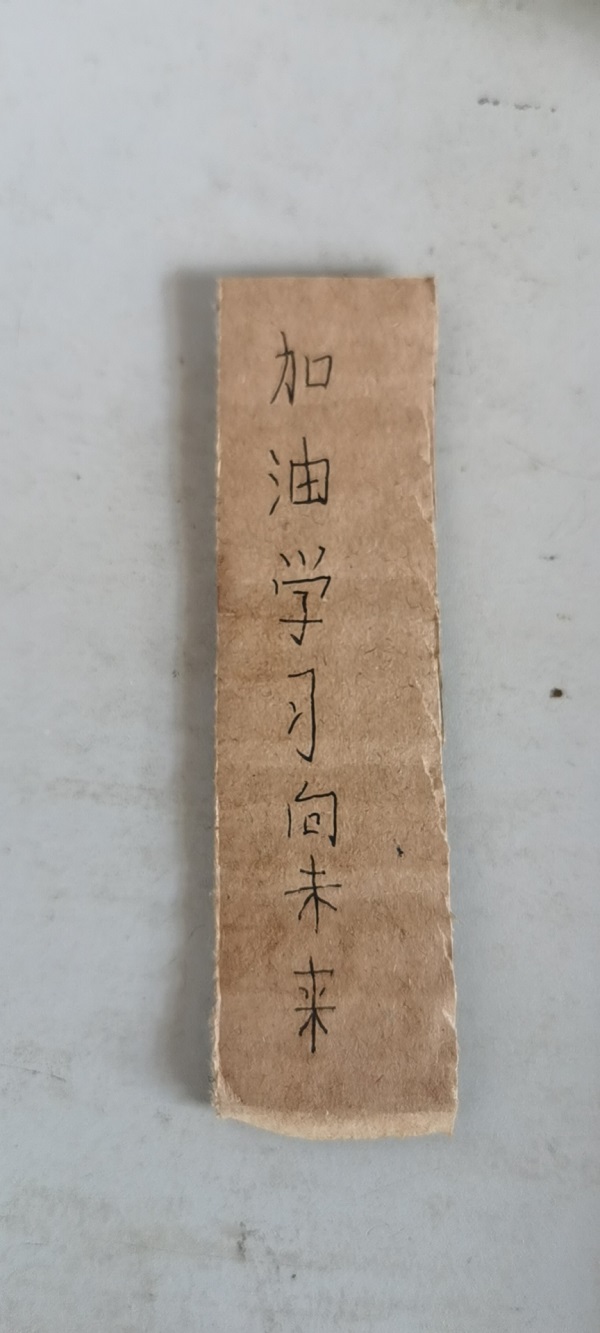 加油学习向未来